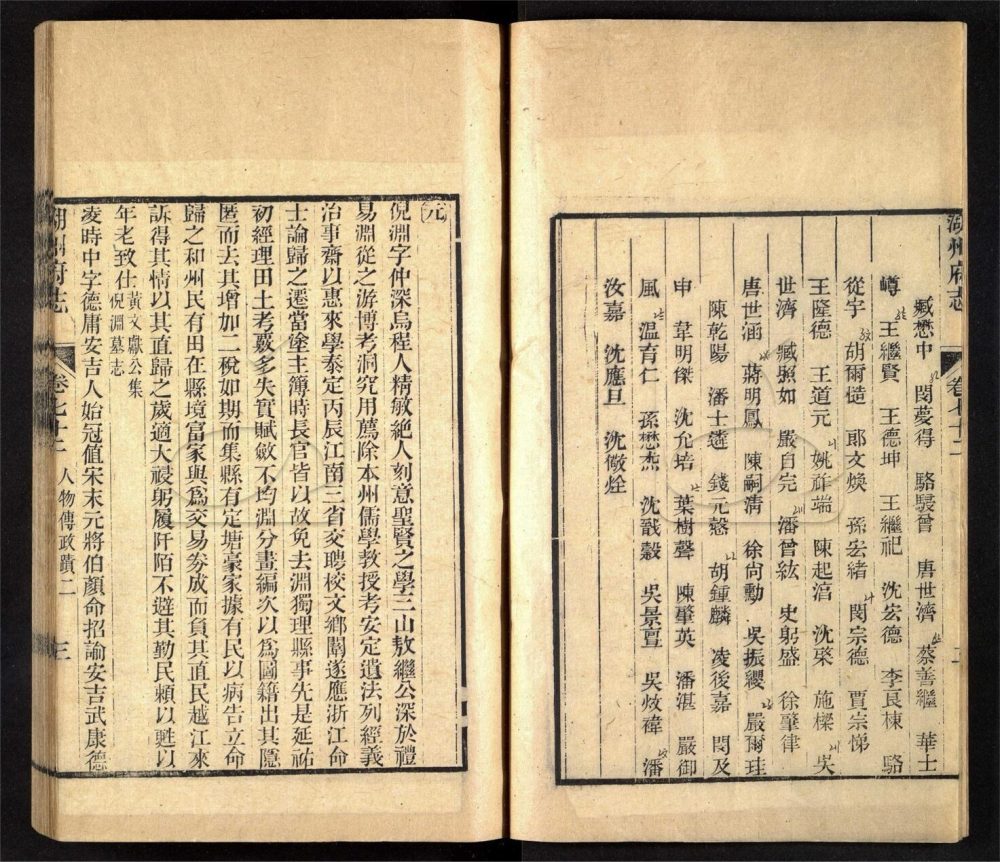 湖州府志 卷七十二 二
臧懋中 閔夢得 駱駸曾 唐世濟 蔡善繼 華士
嶟 王繼賢 王德坤 王繼祀 沈宏德 李良棟 駱
從宇 胡爾慥 耶文煥 孫宏緒 閔宗德 賈宗悌
王隆德 王道元 姚祚端 陳起淓 沈棨 施樑 吳
世濟 臧照如 嚴自完 潘曾紘 史躬盛 徐肇律
唐世涵 蔣明鳳 陳嗣清 徐尙勳 吳振纓 嚴爾珪
陳乾陽 潘士遴 錢元慤 胡鍾麟 凌後嘉 閔及
申 韋明傑 沈允培 葉樹聲 陳肇英 潘湛 嚴御
風 溫育仁 孫懋杰 沈戩穀 吳景亶 吳炆禕 潘
汝嘉 沈應旦 沈儆烇
元
倪淵字仲深烏程人精敏絕人刻意聖賢之學三山敖繼公深於禮
易淵從之游博考洞究用薦除本州儒學教授考安定遺法列經義
治事齋以惠來學泰定丙辰江南三省交聘校文鄉闈遂應浙江命
士論歸之遷當塗主簿時長官皆以故免去淵獨理縣事先是延祐
初經理田土考覈多失實賦斂不均淵分畫編次以爲圖籍出其隱
匿而去其增加二稅如期而集縣有定塘豪家據有民以病告立命
歸之和州民有田在縣境富家與爲交易劵成而負其直民越江來
訴得其情以其直歸之歲適大祲躬履阡陌不避其勤民賴以甦以
年老致仕黃文獻公集
倪淵墓志
凌時中字德庸安吉人始冠值宋末元將伯顏命招諭安吉武康德
湖州府志 卷七十二 人物傳政蹟二 三